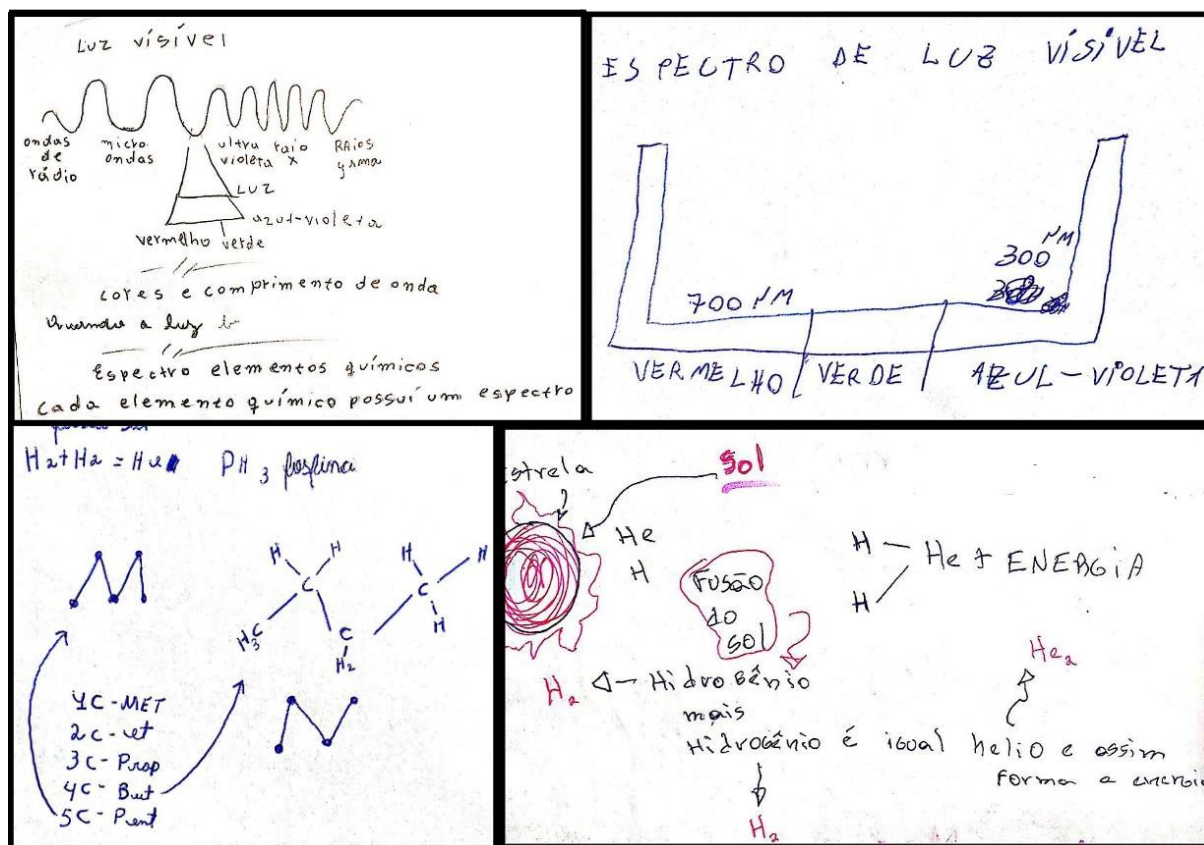 LUZ vísível
ondas de rádio
micro ondas
ultra violeta
raio x
RAios gama
LUZ
azul-violeta
vermelho verde
cores e comprimento de onda
Quando a luz
Espectro elementos químicos
Cada elemento químico possuí um espectro
ESPECTRO DE LUZ VÍSIVEL
700 NM
300 NM
VERMELHO / VERDE / AZUL-VIOLETA
H2+H2 = He PH3 fosfina
H H H H
C C
H3C C H
H2
1C-MET
2C-et
3C-Prop
4C-But
5C-Pent
Estrela
Sol
He
H
Fusão do sol
H
H
He + ENERGIA
He2
H2
Hidrogênio
mais
Hidrogênio é igual helio e assim
Forma a energia
H2